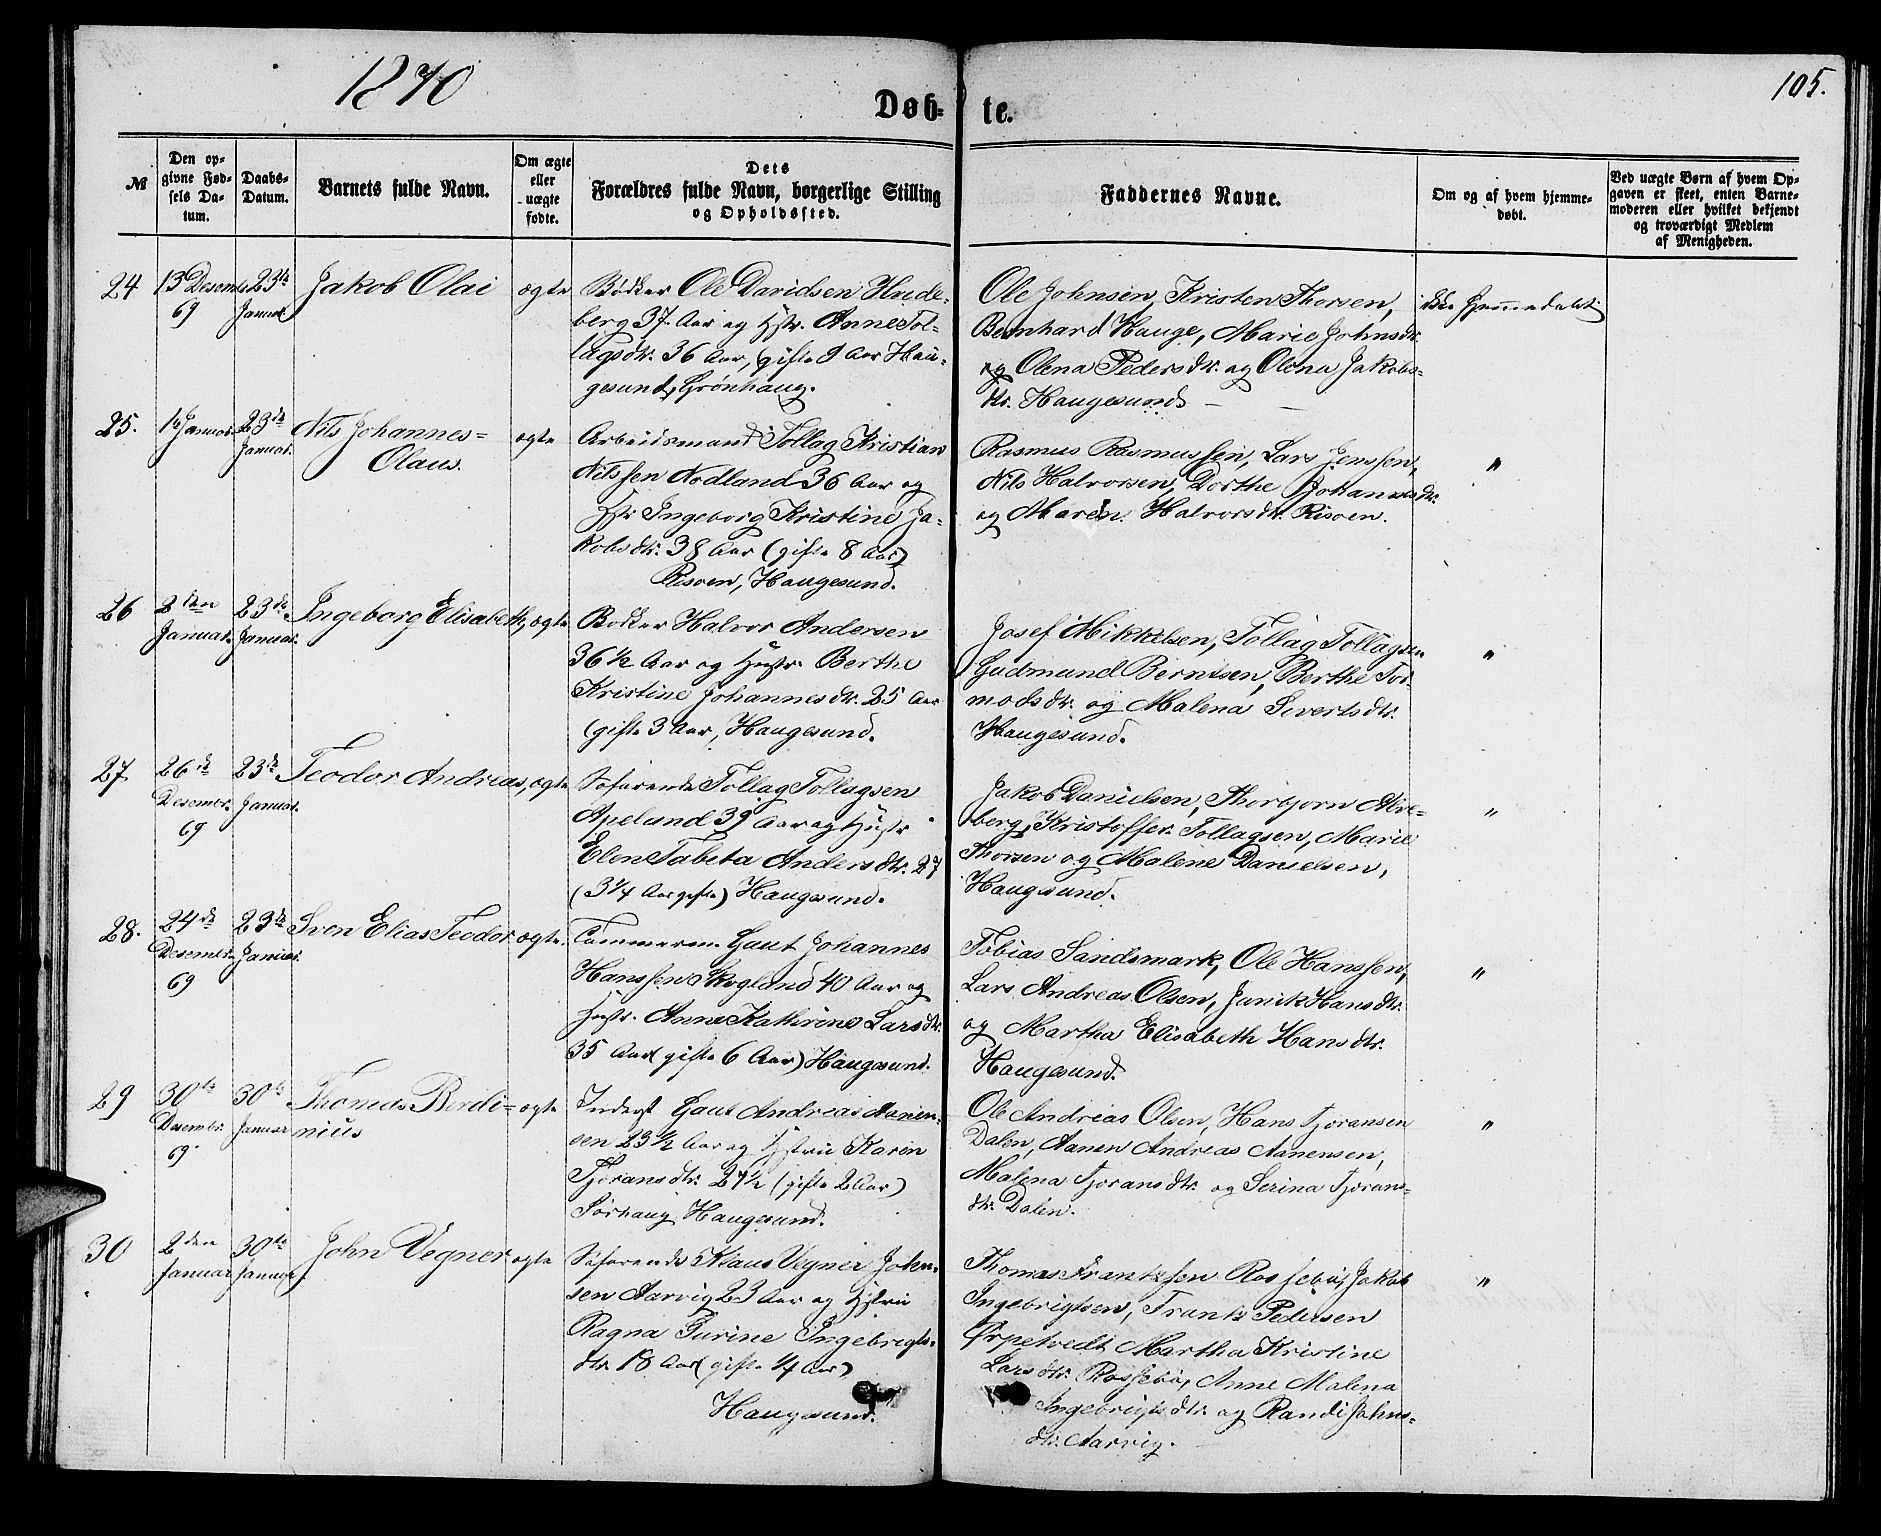 1870
Døb-te.
105.
№
Den opgivne Fødsels Datum.
Daabs-Datum.
Barnets fulde Navn.
Om ægte eller uægte fødte.
Dets Forældres fulde Navn, borgerlige Stilling og Opholdssted.
Faddernes Navne.
Om og af hvem hjemmedøbt.
Ved uægte Børn af hvem Opgaven er skeet, enten Barnemoderen eller hvilket bekjendt og troværdigt Medlem af Menigheden.
24
13 Desemb.
69
23de
Januar
Jakob Olai
ægte
Bødker Ole Davidsen Hvide-
berg 37 Aar og Hstr. Anne Tol-
lagsdtr. 36 Aar, (gifte 9 Aar Hau-
gesund, Grønhaug.
Ole Johnsen, Kristen Thorsen,
Bernhard Hauge, Marie Johnsdtr.
og Olena Pedersdtr. og Olena Jakobs-
dtr. Haugesund
ikke hjemmedøbt
25.
Januar
23de
Januar.
Nils Johannes=
Olaus.
ægte
Arbeidsmand Tollag Kristian
Nilssen Nodland 36 Aar og
Hstr Ingeborg Kristine Ja-
kobsdtr. 38 Aar (gifte 8 Aar)
Risøen, Haugesund.
Rasmus Rasmussen, Lars Jenssen,
Nils Halvorsen, Dorthe Johannesdtr.
og Maren Halvorsdtr. Risøen.
"
26
2den
Januar.
23de
Januar.
Ingeborg Elisabeth,
ægte
Bødker Halvor Andersen
36 1/2 Aar og Hustr. Berthe
Kristine Johannesdtr. 25 Aar
(gifte 3 Aar, Haugesund.
Josef Mikkelsen, Tollag Tollagsen
Gudmund Berntsen, Berthe Tor-
modsdtr. og Malena Sivertsdtr.
Haugesund.
"
27
26de
Desembr.
69
23de
Januar.
Teodor Andreas,
ægte
Søfarende Tollag Tollagsen
Apeland 39 Aar og Hustr
Elen Tabeta Andersdtr. 27
(3 1/4 Aar gifte) Haugesund.
Jakob Danielsen, Thorbjørn Alve-
berg, Kristoffer Tollagsen, Marie
Thorsen og Malene Danielsen,
Haugesund.
"
28.
24de
Desembr.
69
23de
Januar.
Sven Elias Teodor
ægte.
Tømmerm. Gaut Johannes
Hanssen Skogland 40 Aar og
Hustr. Anne Kathrine Larsdtr.
35 Aar (gifte 6 Aar) Haugesund.
Tobias Sandsmark, Ole Hanssen,
Lars Andreas Olsen, Janik Hansdtr.
og Martha Elisabeth Hansdtr.
Haugesund.
"
29
30te
Desembr.
69.
30te
Januar
Thomas Berdi=
nius
ægte
Inderst Gaut Andreas Aanen-
sen 23 1/2 Aar og Hstru Karen
Tjøransdtr. 27 1/2 (gifte 2 Aar)
Sørhaug, Haugesund.
Ole Andreas Olsen, Hans Tjøransen
Dalen, Aanen Andreas Aanensen,
Malena Tjøransdtr. og Serina Tjørans-
dtr. Dalen.
"
30
2den
Januar
30te
Januar
John Vegner
ægte
Søfarende Klaus Vegner John-
sen Aarvig 23 Aar og Hstru
Ragna Gurine Ingebrigts-
dtr. 18 Aar (gifte 1/4 Aar)
Haugesund.
Thomas Frantzsen Rossebø, Jakob
Ingebrigtsen, Frants Pedersen
Ørpetvedt, Martha Kristine
Larsdtr. Rossebø, Anne Malena
Ingebrigtsdtr. og Randi Johns-
dtr. Aarvig.
"